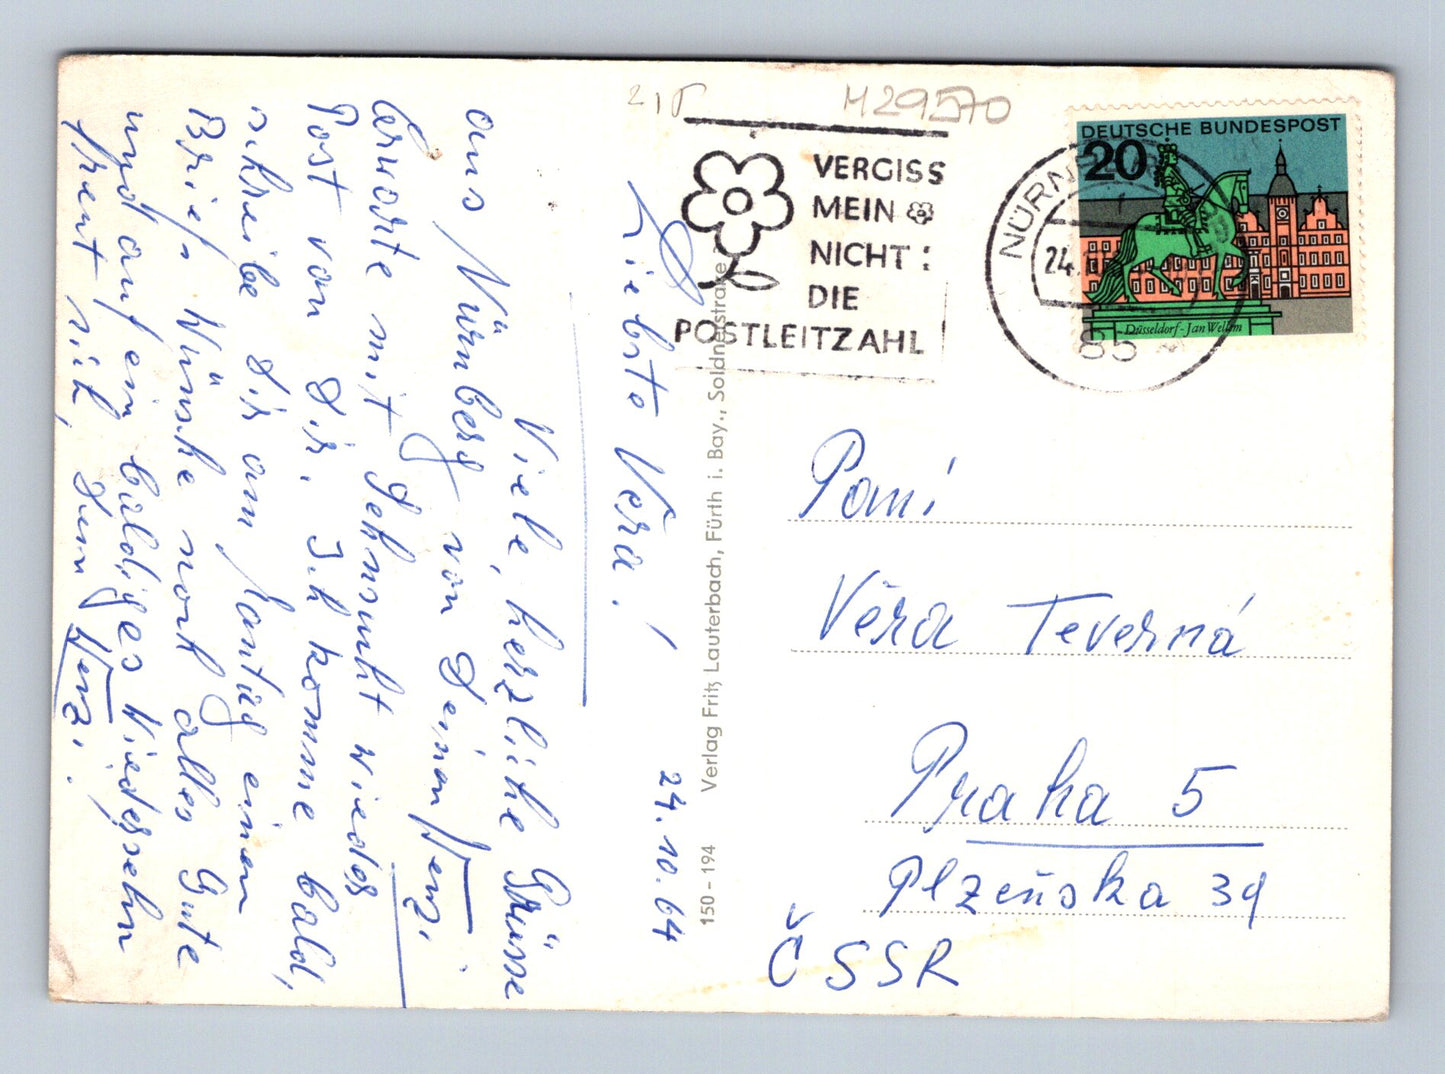 21
H29570
VERGISS
MEIN
NICHT:
DIE
POSTLEITZAHL
NÜRN
24.
85
DEUTSCHE BUNDESPOST
20
Düsseldorf-Jan Wellem
24.10.64
Liebste Vera!
Viele, herzliche Grüsse
aus Nürnberg von Deinem
Erwarte mit Sehnsucht wieder
Post von Dir. Ich komme bald,
schreibe Dir am Samstag einen
Brief. Wünsche noch alles Gute
und auf ein baldiges Wiedersehn
freut sich, Dein
150-194 Verlag Fritz Lauterbach, Fürth i. Bay., Soldnerstraße
Paní
Věra Teverná
Praha 5
Plzeňska 39
ČSSR